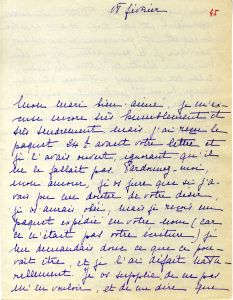 18 février
45
mon mari bien-aimé, je m'ex-
cuse encore très humblement et
très tendrement mais j'ai reçu le
paquet 24h avant votre lettre et
je l'avais ouvert, ignorant qu'il
ne le fallait pas. Pardonnez-moi,
mon amour, je vs jure que si j'a-
vais pu me douter de votre désir,
je vs aurais obéi, mais je reçois un
paquet expédié en votre nom (car
ce n'était pas votre écriture) je
me demandais donc ce que ce pou-
vait être, et je l'ai défait natu-
rellement. Je vs supplie de ne pas
m'en vouloir, et de me dire que